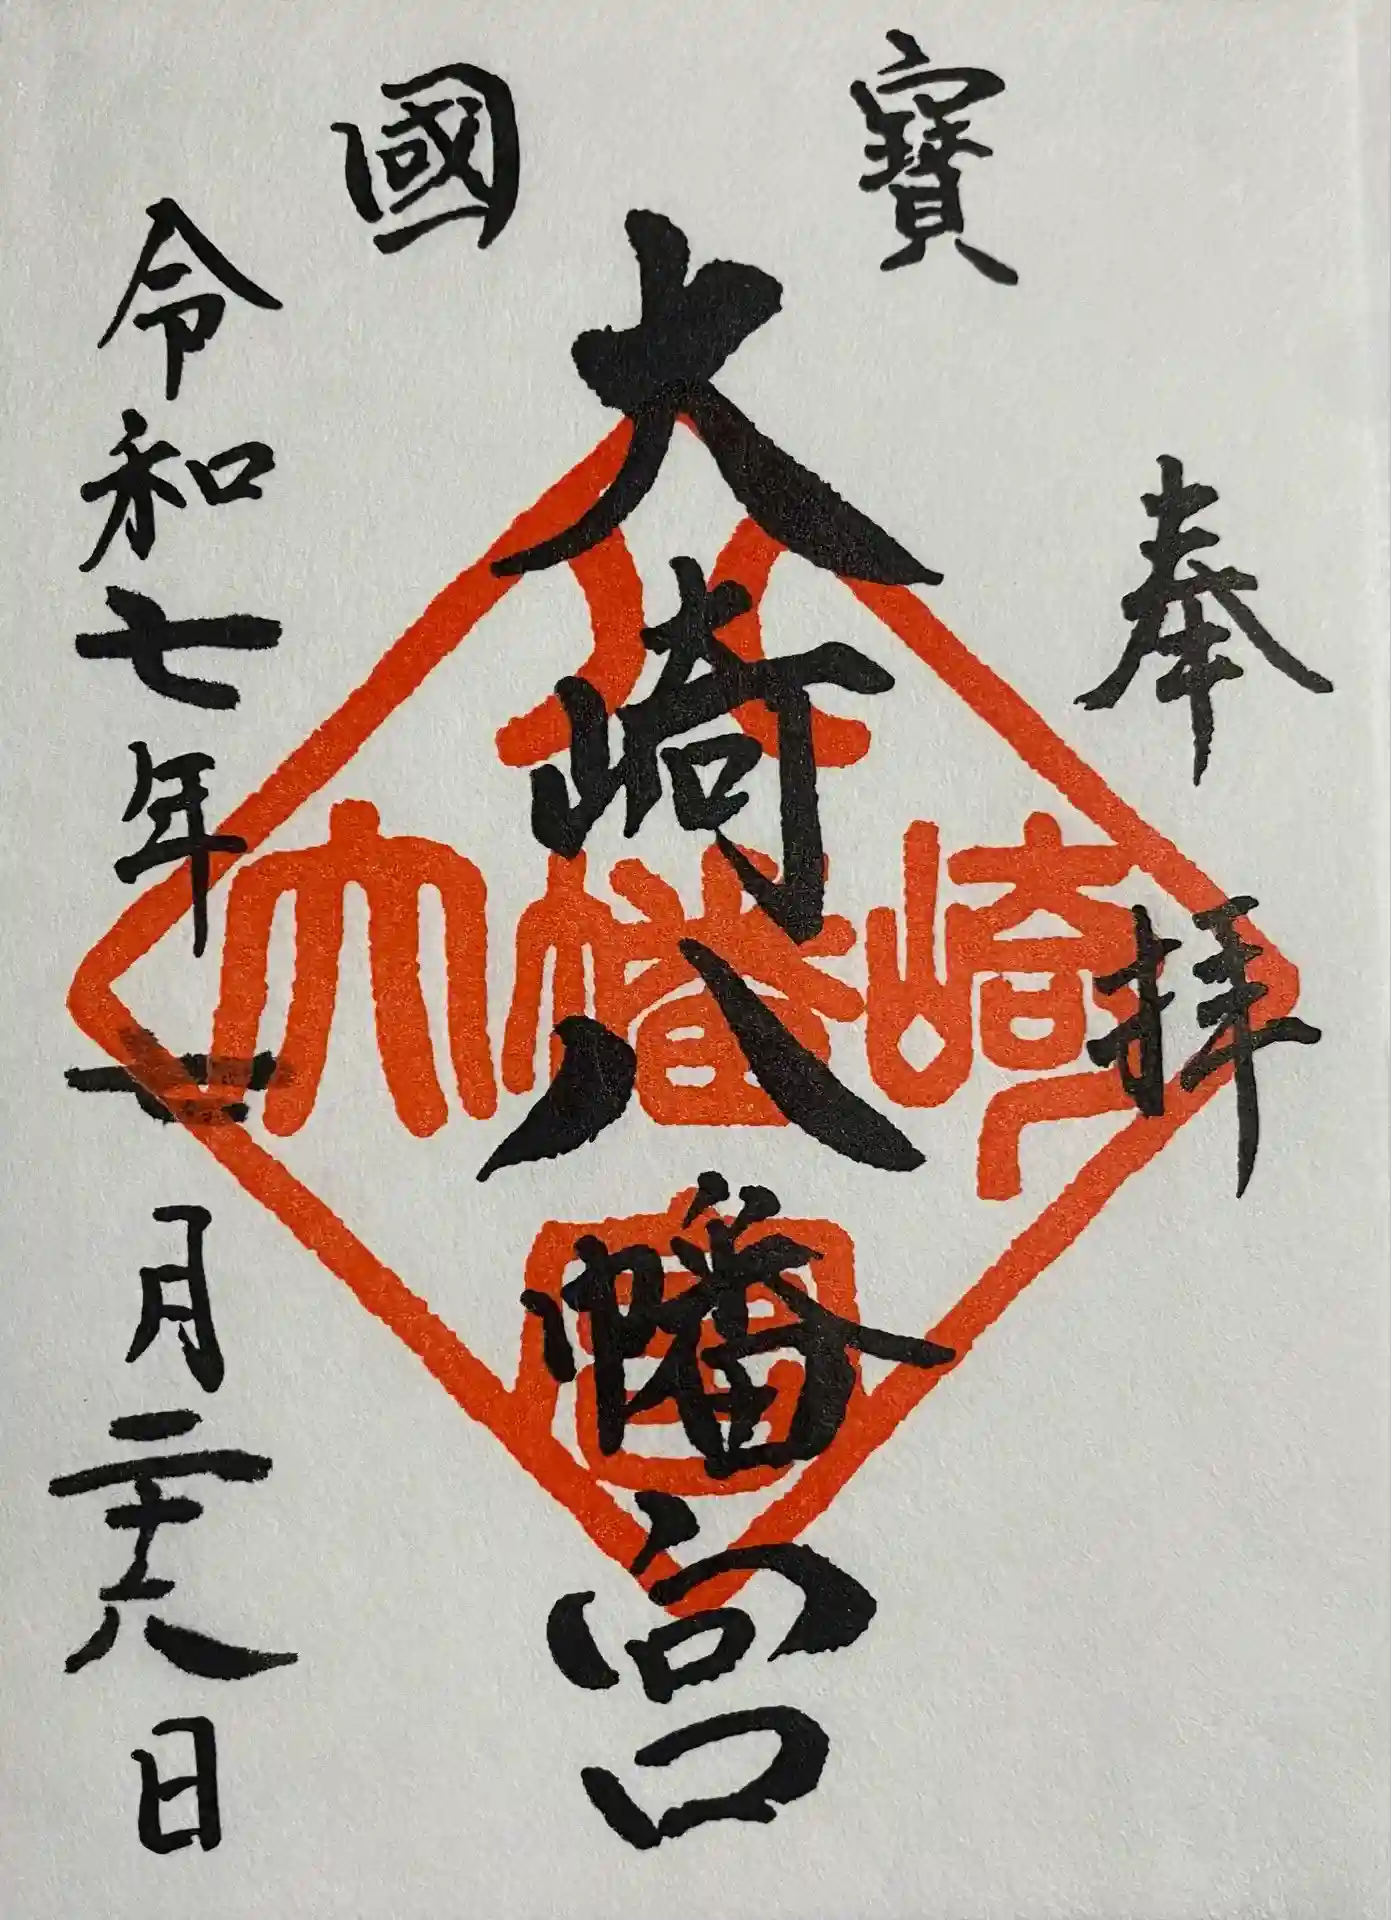 奉拝
寶
大崎八幡宮
國
令和七年 月二十八日
大崎八幡宮